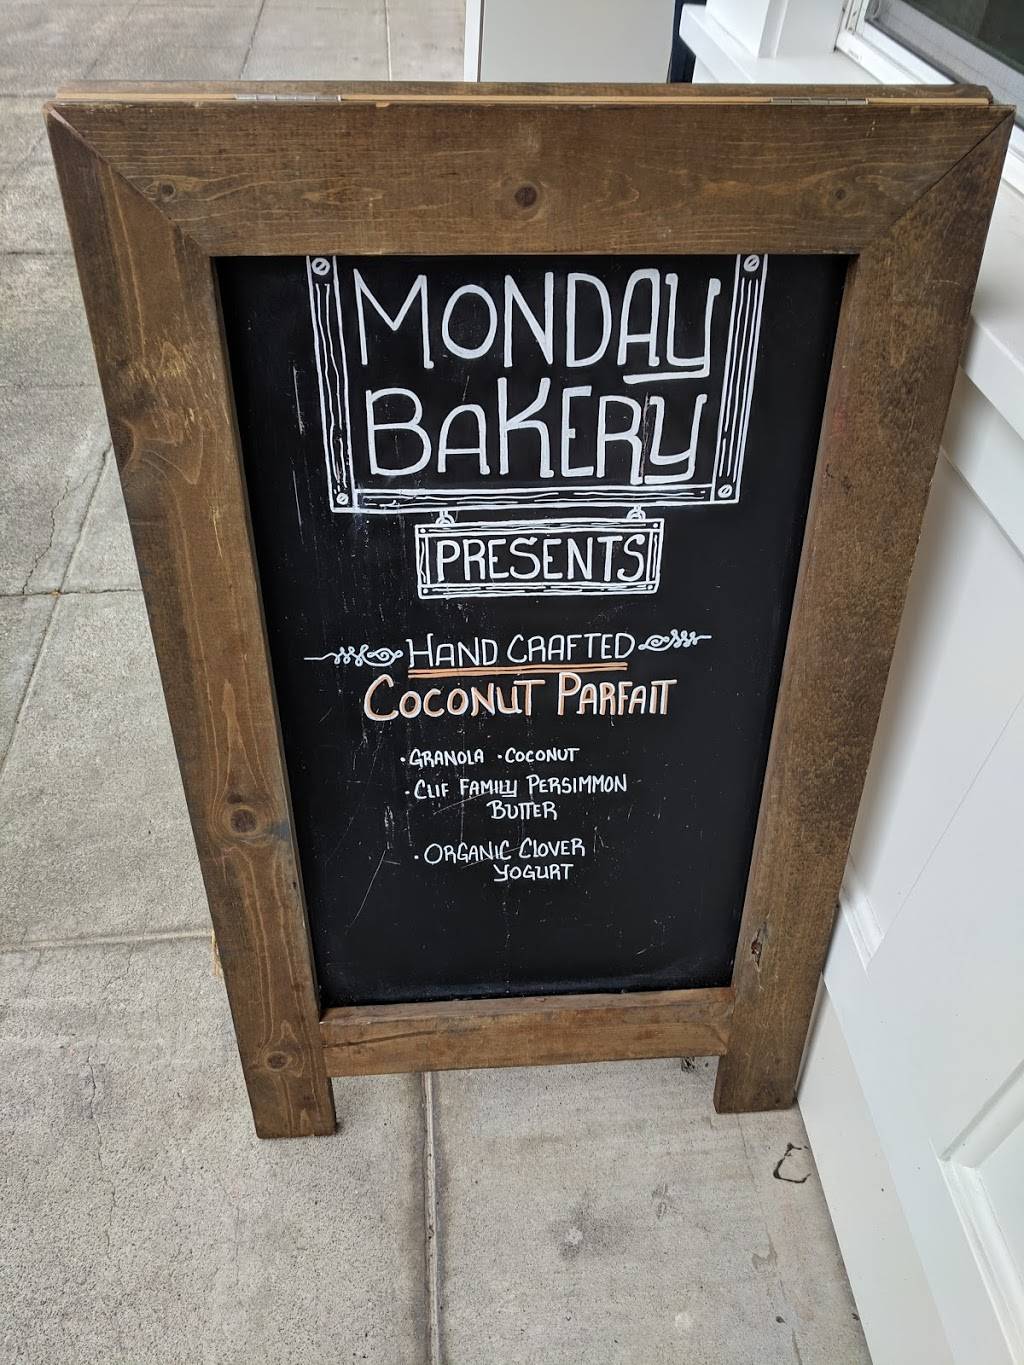 MONDAY
BAKERY
PRESENTS
HAND CRAFTED
COCONUT PARFAIT
· GRANOLA · COCONUT
· CLIF FAMILY PERSIMMON
BUTTER
· ORGANIC CLOVER
YOGURT